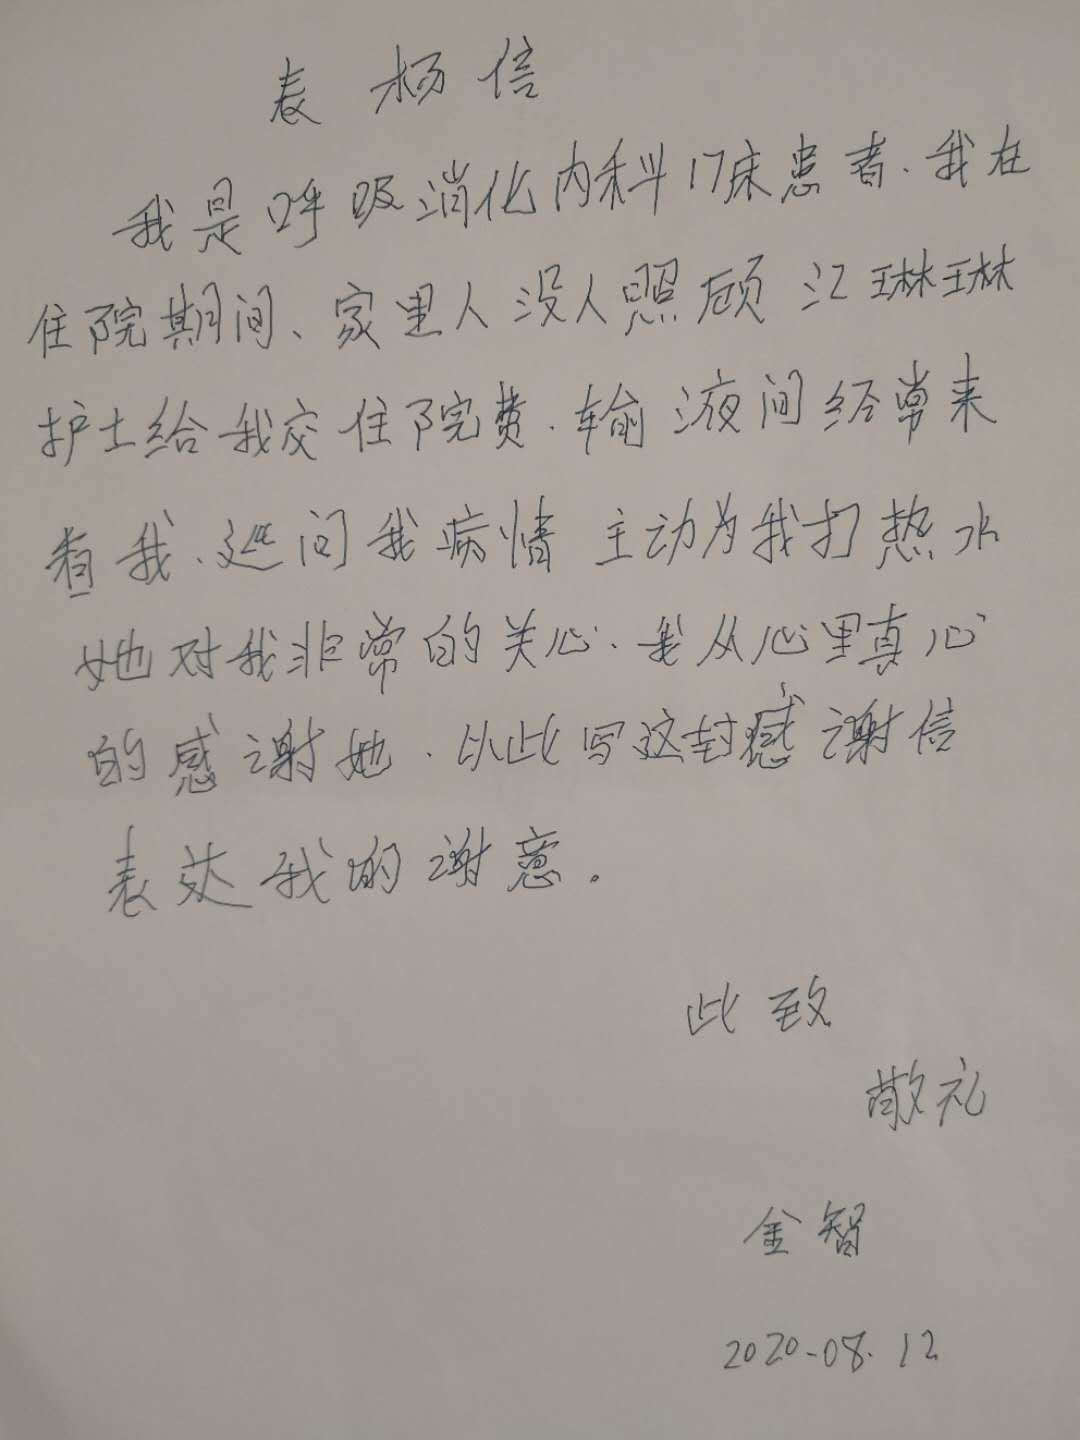 表杨信
我是呼吸消化内科17床患者.我在
住院期间、家里人没人照顾 江琳琳
护士给我交住院费.输液间经常来
看我、巡问我病情 主动为我打热水
她对我非常的关心.我从心里真心
的感谢她.以此写这封感谢信
表达我的谢意。
此致
敬礼
金智
2020-08.12